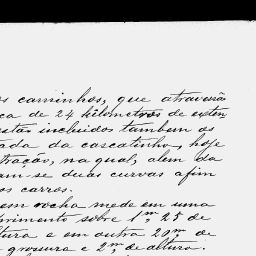 s caminhos, que atravessã
ca de 24 kilometros de exten
estão incluidos tambem os
ada da cascatinha, hoje
tração, na qual, alem da
am-se duas curvas afim
os carros.
em rocha mede em uma
primento sobre 1m, 25 de
tura e em outra 20m, de
grossura e 2m, de altura.